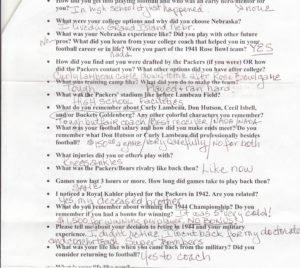 • How did you get into playing football and who was an early hero/mentor for
you? In high school it just happened none
• What were your college options and why did you choose Nebraska?
I lived in Grand Island Nebr.
• What was your Nebraska experience like? Did you play with other future
pros? What did you learn from your college coach that helped you in your
football career or in life? Were you part of the 1941 Rose Bowl team? YES
• How did you find out you were drafted by the Packers (if you were) OR how
did the Packers contact you? What other options did you have after college?
Curly Lambeau came down after Rose Bowl game
• What was training camp like? What did you do to make the team?
Tough Played & ran hard
• What was the Packers' stadium like before Lambeau Field?
High School Facilities
• What do you remember about Curly Lambeau, Don Hutson, Cecil Isbell,
and/or Buckets Goldenberg? Any other colorful characters you remember?
Tough but fair coach, Best receiver
• What was your football salary and how did you make ends meet? Do you
remember what Don Hutson or Curly Lambeau did professionally besides
football? $150 a game/Very Carefully/No for both
• What injuries did you or others play with?
Knees & ankles
• What was the Packers/Bears rivalry like back then? Like now
• Games now last 3 hours or more. How long did games take to play back then?
Same
• I noticed a Royal Kahler played for the Packers in 1942. Are you related?
Yes my deceased brother
• What do you remember about winning the 1944 Championship? Do you
remember if you had a bonus for winning? It was very cold!
$1,500 for winning No BONUS!
• Please tell me about your decision to retire to 1944 and your military
• What was your life like when you came back from the military? Did you
consider returning to football? Yes to coach